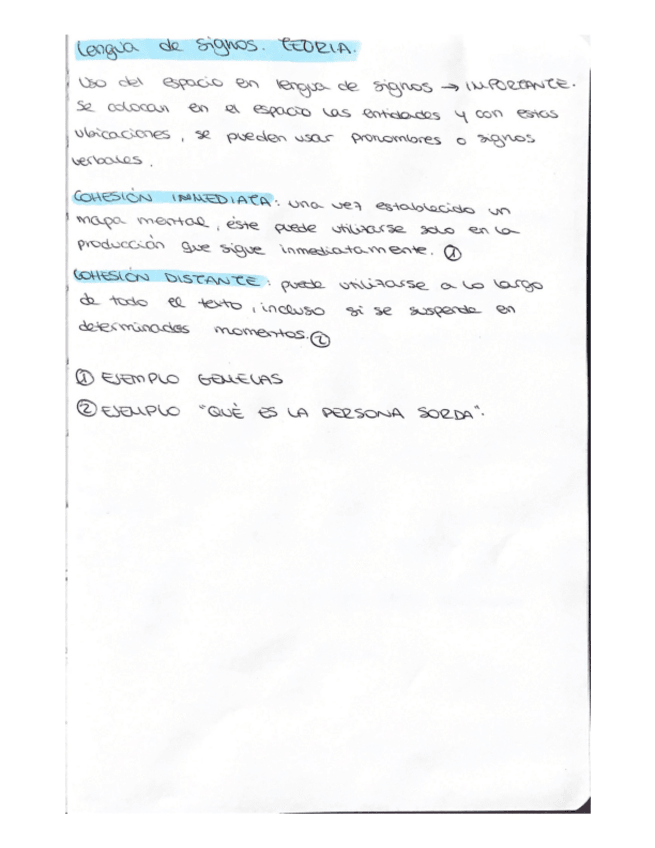 Lengua de signos. TEORIA.
Uso del espacio en lengua de signos → IMPORTANTE.
Se colocan en el espacio las entidades y con estas
ubicaciones, se pueden usar pronombres o signos
verbales.
COHESIÓN INMEDIATA: una vez establecido un
mapa mental, éste puede utilizarse solo en la
producción que sigue inmediatamente. ①
COHESIÓN DISTANTE: puede utilizarse a lo largo
de todo el texto, incluso si se suspende en
determinados momentos. ②
① EJEMPLO GEMELAS
② EJEMPLO "QUÈ ES LA PERSONA SORDA".